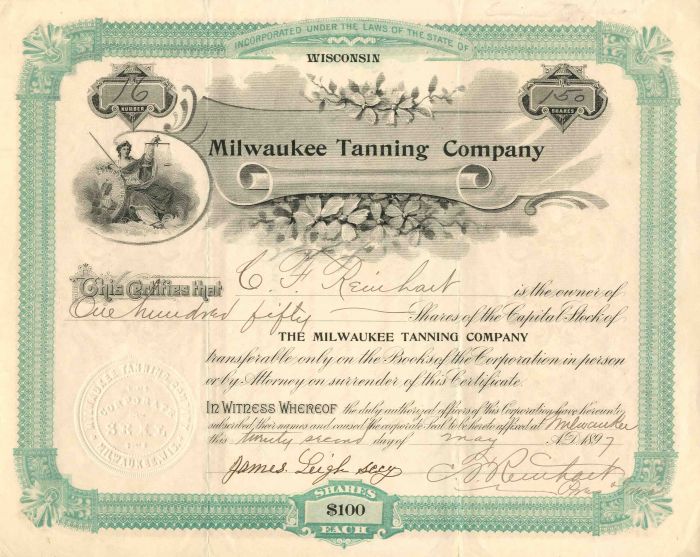 INCORPORATED UNDER THE LAWS OF THE STATE OF
WISCONSIN
76
NUMBER
150
SHARES
Milwaukee Tanning Company
This Certifies that C. F. Reinhart is the owner of
One hundred fifty Shares of the Capital Stock of
THE MILWAUKEE TANNING COMPANY
transferable only on the Books of the Corporation in person
or by Attorney on surrender of this Certificate.
IN WITNESS WHEREOF the duly authorized officers of this Corporation have hereunto
subscribed their names and caused the corporate Seal to be hereto affixed at Milwaukee
this twenty second day of May A.D. 1897
MILWAUKEE TANNING COMPANY
CORPORATE
SEAL
MILWAUKEE, WIS.
James Leigh Secy
C. F. Reinhart
SHARES
$100
EACH